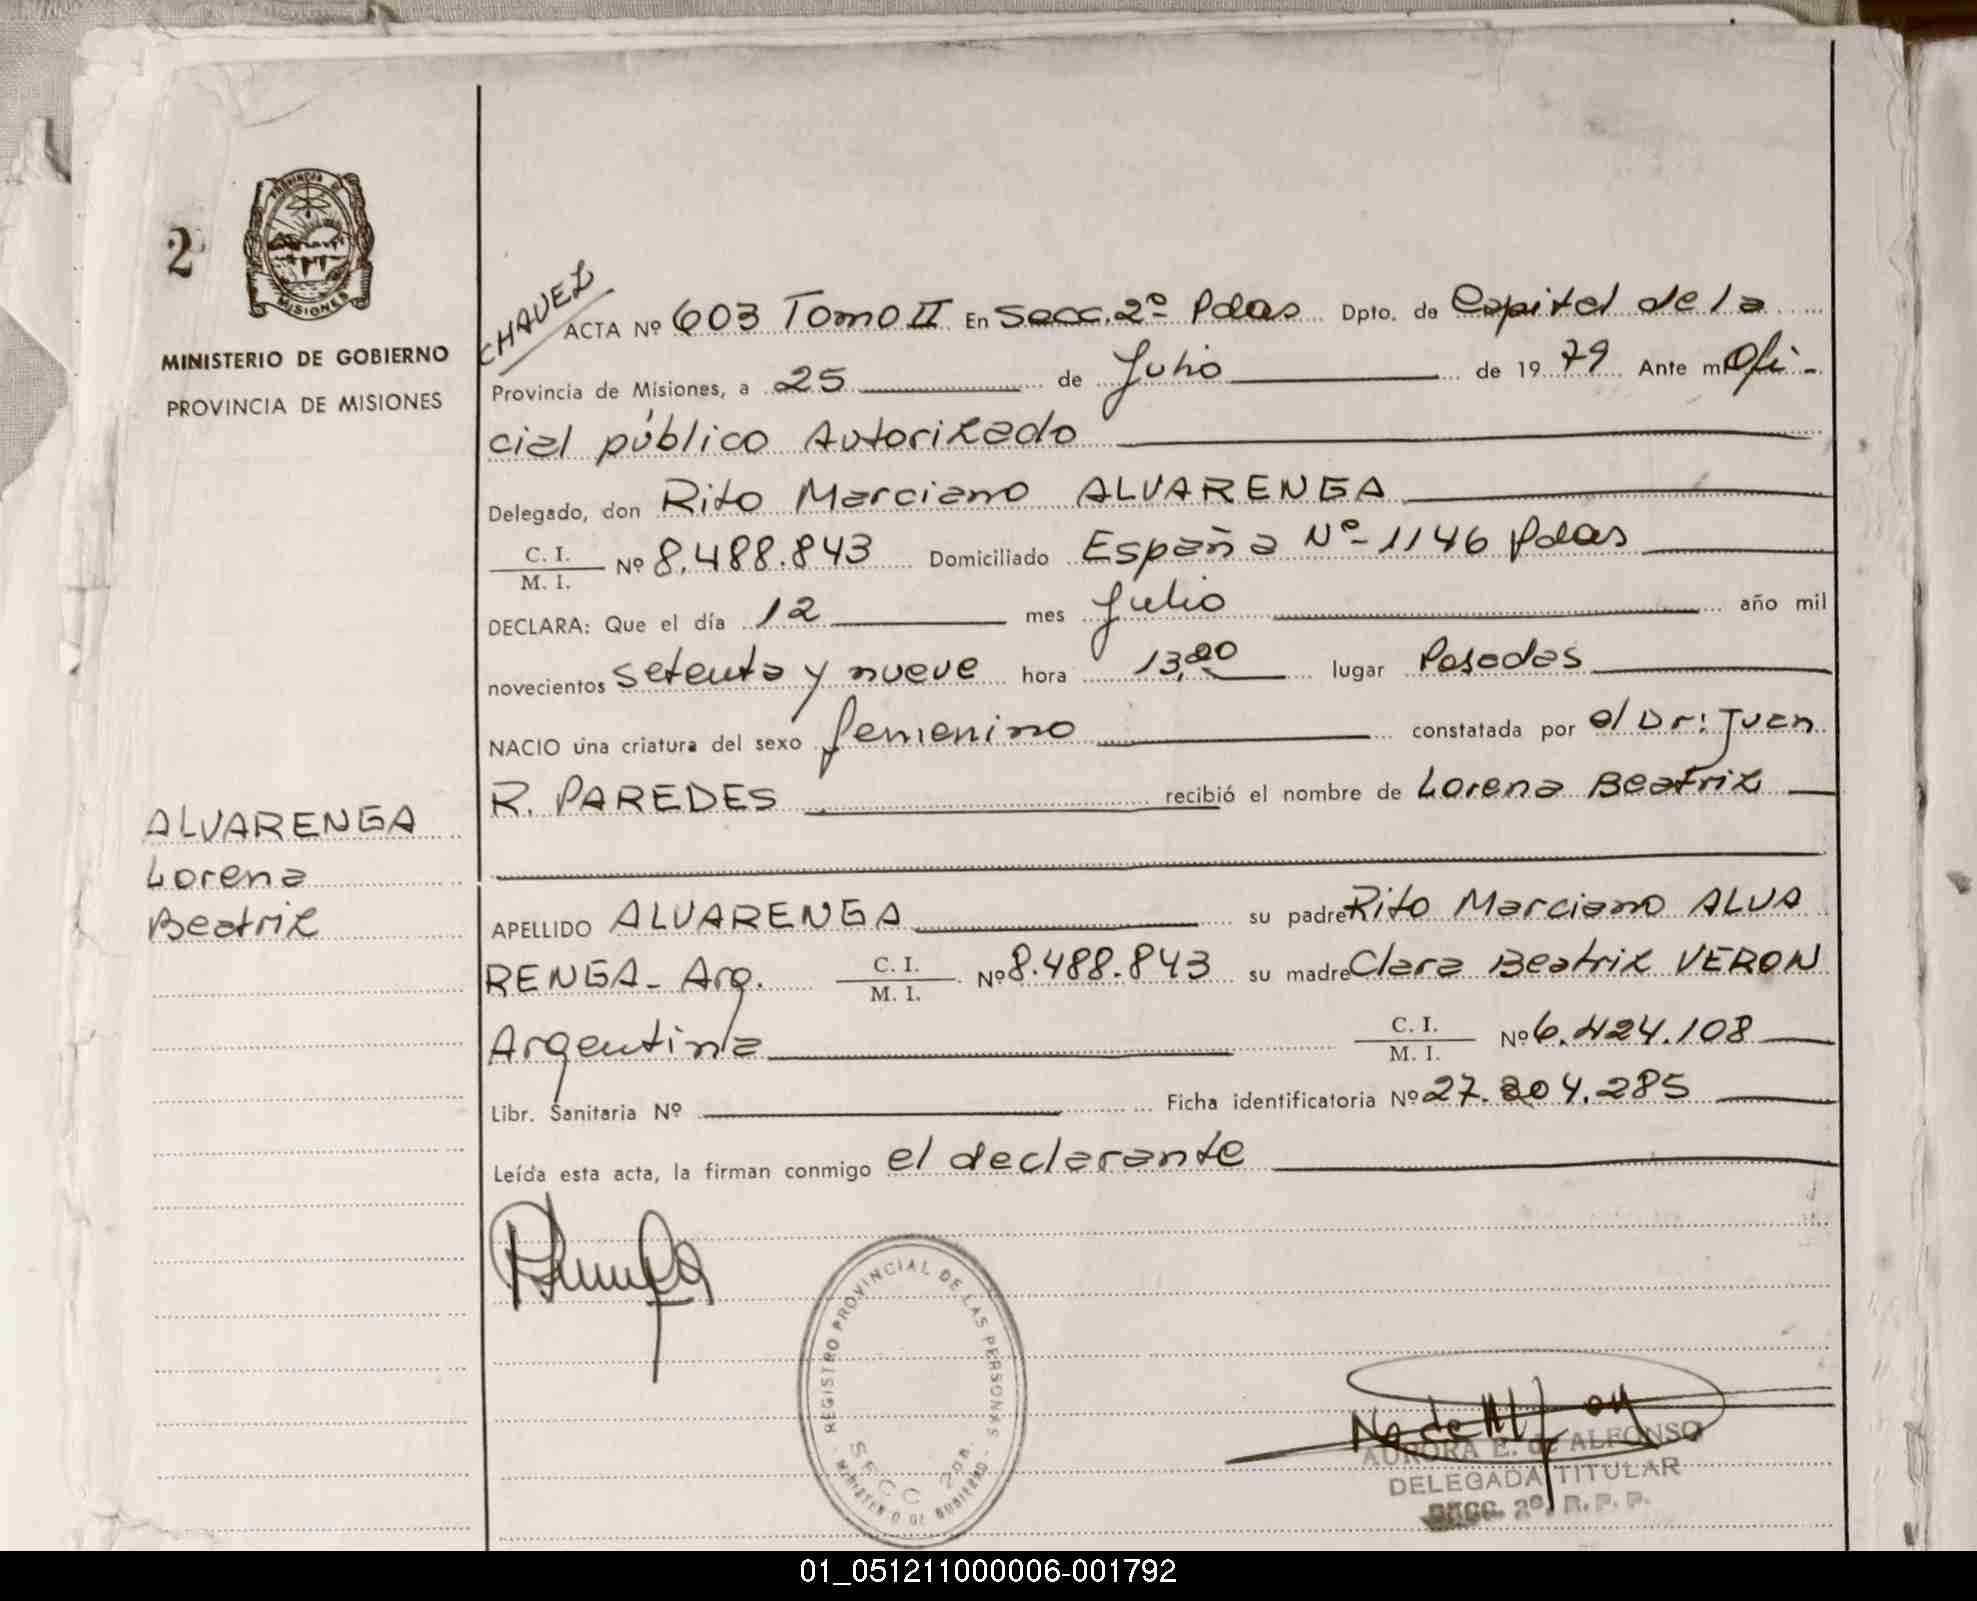 2
PROVINCIA DE
MISIONES
MINISTERIO DE GOBIERNO
PROVINCIA DE MISIONES
ALVARENGA
Lorena
Beatriz
CHAVEZ
ACTA Nº 603 Tomo II En Secc. 2º Pdas Dpto. de Capital de la
Provincia de Misiones, a 25 de Julio de 1979 Ante mi Ofi-
cial público Autorizado
Delegado, don Rito Marciano ALVARENGA
C. I.
M. I. Nº 8.488.843 Domiciliado España Nº 1146 Pdas
DECLARA: Que el día 12 mes Julio año mil
novecientos setenta y nueve hora 13,00 lugar Posadas
NACIO una criatura del sexo femenino constatada por el Dr: Juan
R. PAREDES recibió el nombre de Lorena Beatriz
APELLIDO ALVARENGA su padre Rito Marciano ALVA
RENGA- Arg. C. I.
M. I. Nº 8.488.843 su madre Clara Beatriz VERON
Argentina C. I.
M. I. Nº 6.424.108
Libr. Sanitaria Nº Ficha identificatoria Nº 27.204.285
Leída esta acta, la firman conmigo el declarante
REGISTRO PROVINCIAL DE LAS PERSONAS
SECC 2da
MINISTERIO DE GOBIERNO
AURORA E. de ALFONSO
DELEGADA TITULAR
SECC. 2º, R. P. P.
01_051211000006-001792